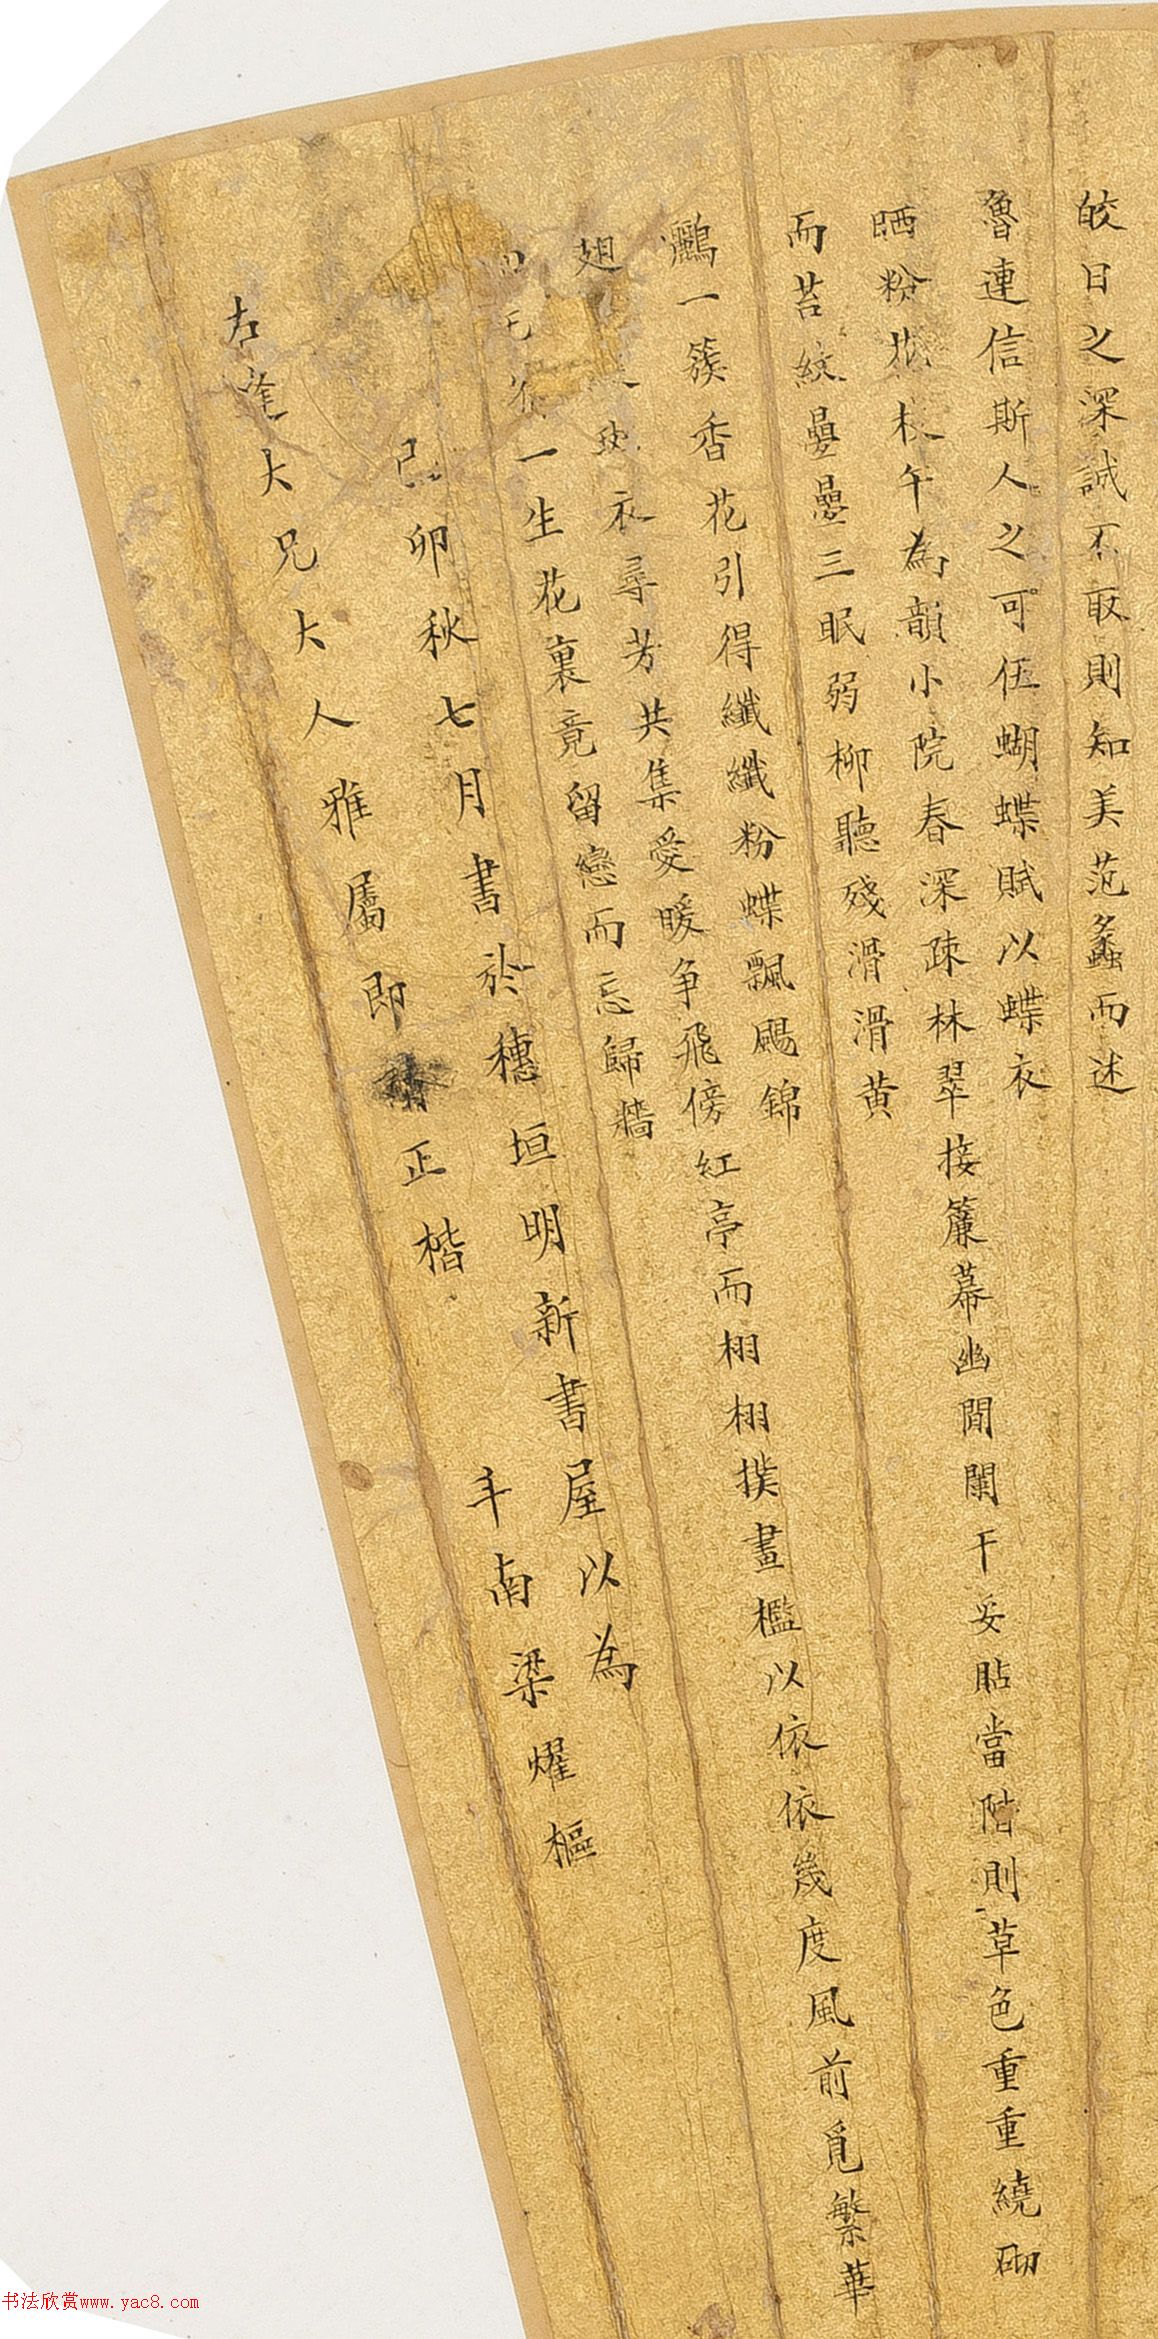 皎日之深誠不取則知美范蠡而述
魯連信斯人之可伍蝴蝶賦以蝶衣
晒粉花枝午為韻小院春深疎林翠接簾幕幽閒闌干妥貼當階則草色重重繞砌
而苔紋曡曡三眠弱柳聽殘滑滑黄
鸝一簇香花引得纖纖粉蝶飄颺錦
翅衣尋芳共集愛暖争飛傍紅亭而栩栩撲畫檻以依依幾度風前覓繁華
一生花裏竟留戀而忘歸牆
己卯秋七月書於穗垣明新書屋以為
大兄大人雅屬即正楷
南梁燿樞
书法欣赏www.yac8.com